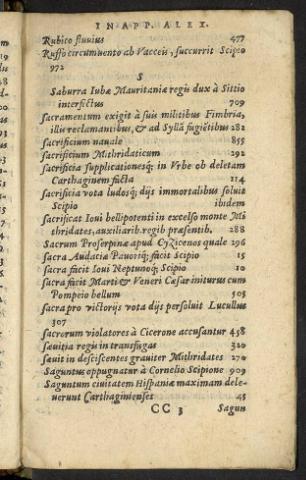 IN APP. ALEX.
Rubico fluuius 477
Ruffo circumuento ab Vacceis, succurrit Scipio
972
S
Saburra Iubæ Mauritaniæ regis dux à Sittio
interfectus 709
Sacramentum exigit à suis militibus Fimbria,
illis reclamantibus, & ad Syllã fugiẽtibus 281
Sacrificium nauale 855
Sacrificium Mithridaticum 292
Sacrificia supplicationesq; in Vrbe ob deletam
Carthaginem facta 114
Sacrificia vota ludosq; dijs immortalibus soluit
Scipio ibidem
Sacrificat Ioui bellipotenti in excelso monte Mi
thridates, auxiliarib. regib præsentib. 288
Sacrum Proserpinæ apud Cyzicenos quale 296
Sacra Audaciæ Pauoriq; facit Scipio 15
Sacra facit Ioui Neptunoq; Scipio 10
Sacra facit Marti & Veneri Cæsar initurus cum
Pompeio bellum 505
Sacra pro victorijs vota dijs persoluit Lucullus
307
Sacrorum violatores à Cicerone accusantur 458
Sæuitia regis in transfugas 320
Sæuit in desciscentes grauiter Mithridates 270
Saguntus oppugnatur à Cornelio Scipione 909
Saguntum ciuitatem Hispaniæ maximam dele-
uerunt Carthaginienses 45
CC 3 Sagun